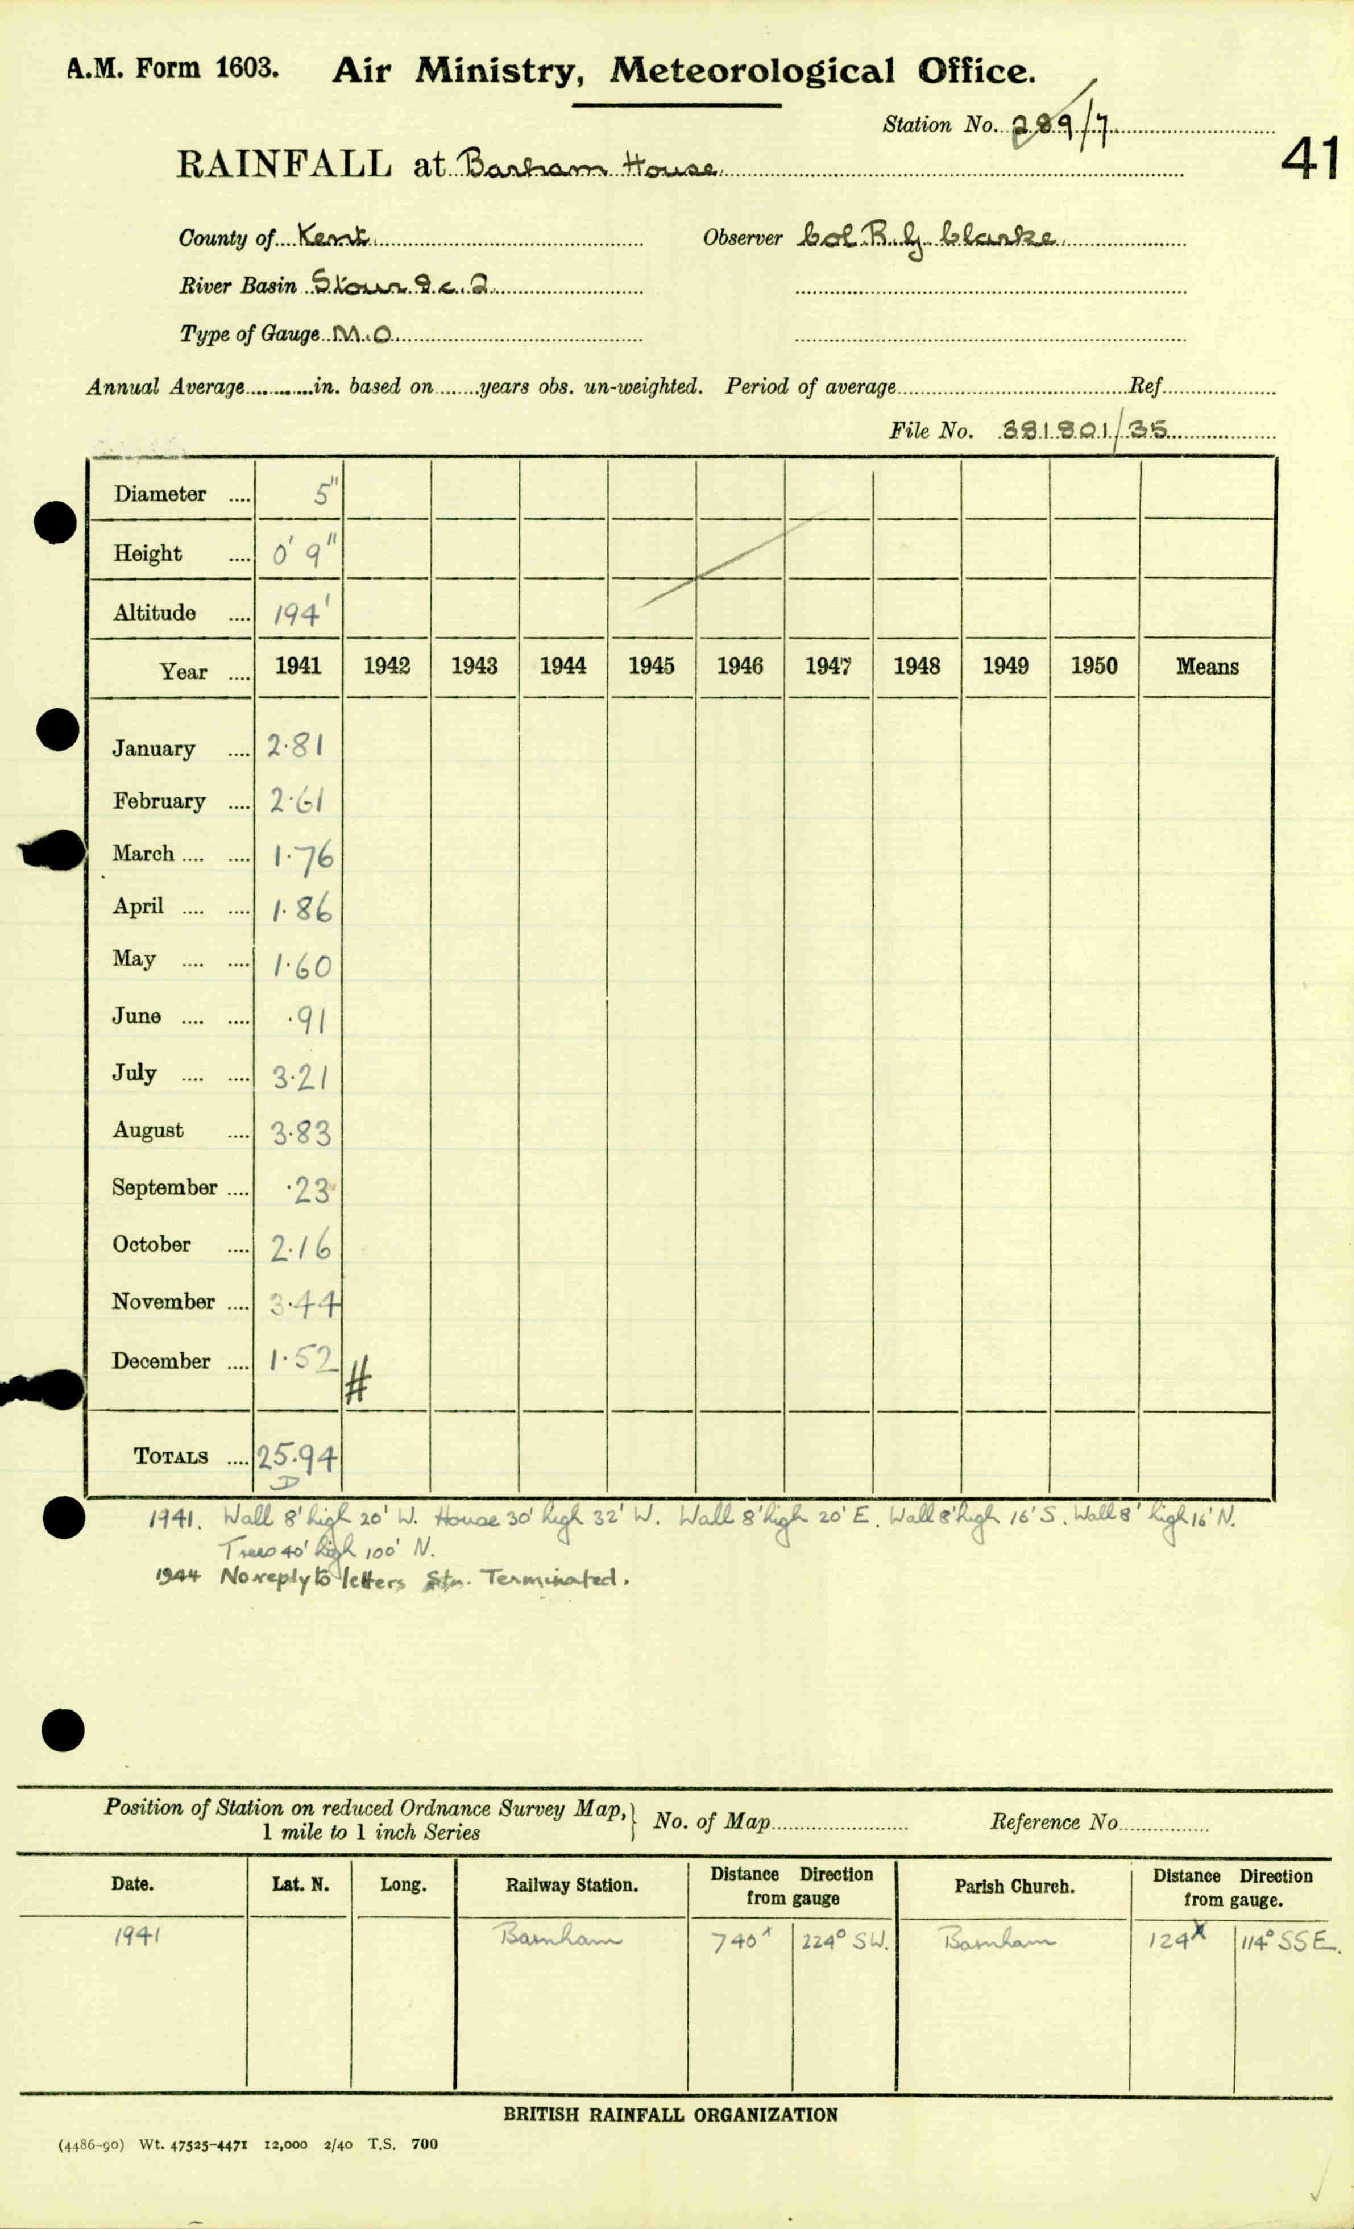 A.M. Form 1603. Air Ministry, Meteorological Office.
Station No. 289/7
41
RAINFALL at Barham House
County of Kent Observer Col R. G. Clarke
River Basin Stour &c. 2
Type of Gauge M.O.
Annual Average in. based on years obs. un-weighted. Period of average Ref.
File No. 381801/35
Diameter .... 5"
Height .... 0' 9"
Altitude .... 194'
Year .... 1941 1942 1943 1944 1945 1946 1947 1948 1949 1950 Means
January .... 2.81
February .... 2.61
March .... .... 1.76
April .... .... 1.86
May .... .... 1.60
June .... .... .91
July .... .... 3.21
August .... 3.83
September .... .23
October .... 2.16
November .... 3.44
December .... 1.52 #
TOTALS .... 25.94
D
1941. Wall 8' high 20' W. House 30' high 32' W. Wall 8' high 20' E. Wall 8' high 16' S. Wall 8' high 16' N.
Trees 40' high 100' N.
1944 No reply to letters Stn. Terminated.
Position of Station on reduced Ordnance Survey Map, } No. of Map Reference No.
1 mile to 1 inch Series
Date. Lat. N. Long. Railway Station. Distance Direction from gauge Parish Church. Distance Direction from gauge.
1941 Barnham 740x 224° SW. Barnham 124x 114° SSE.
BRITISH RAINFALL ORGANIZATION
(4486-90) Wt. 47525-4471 12,000 2/40 T.S. 700